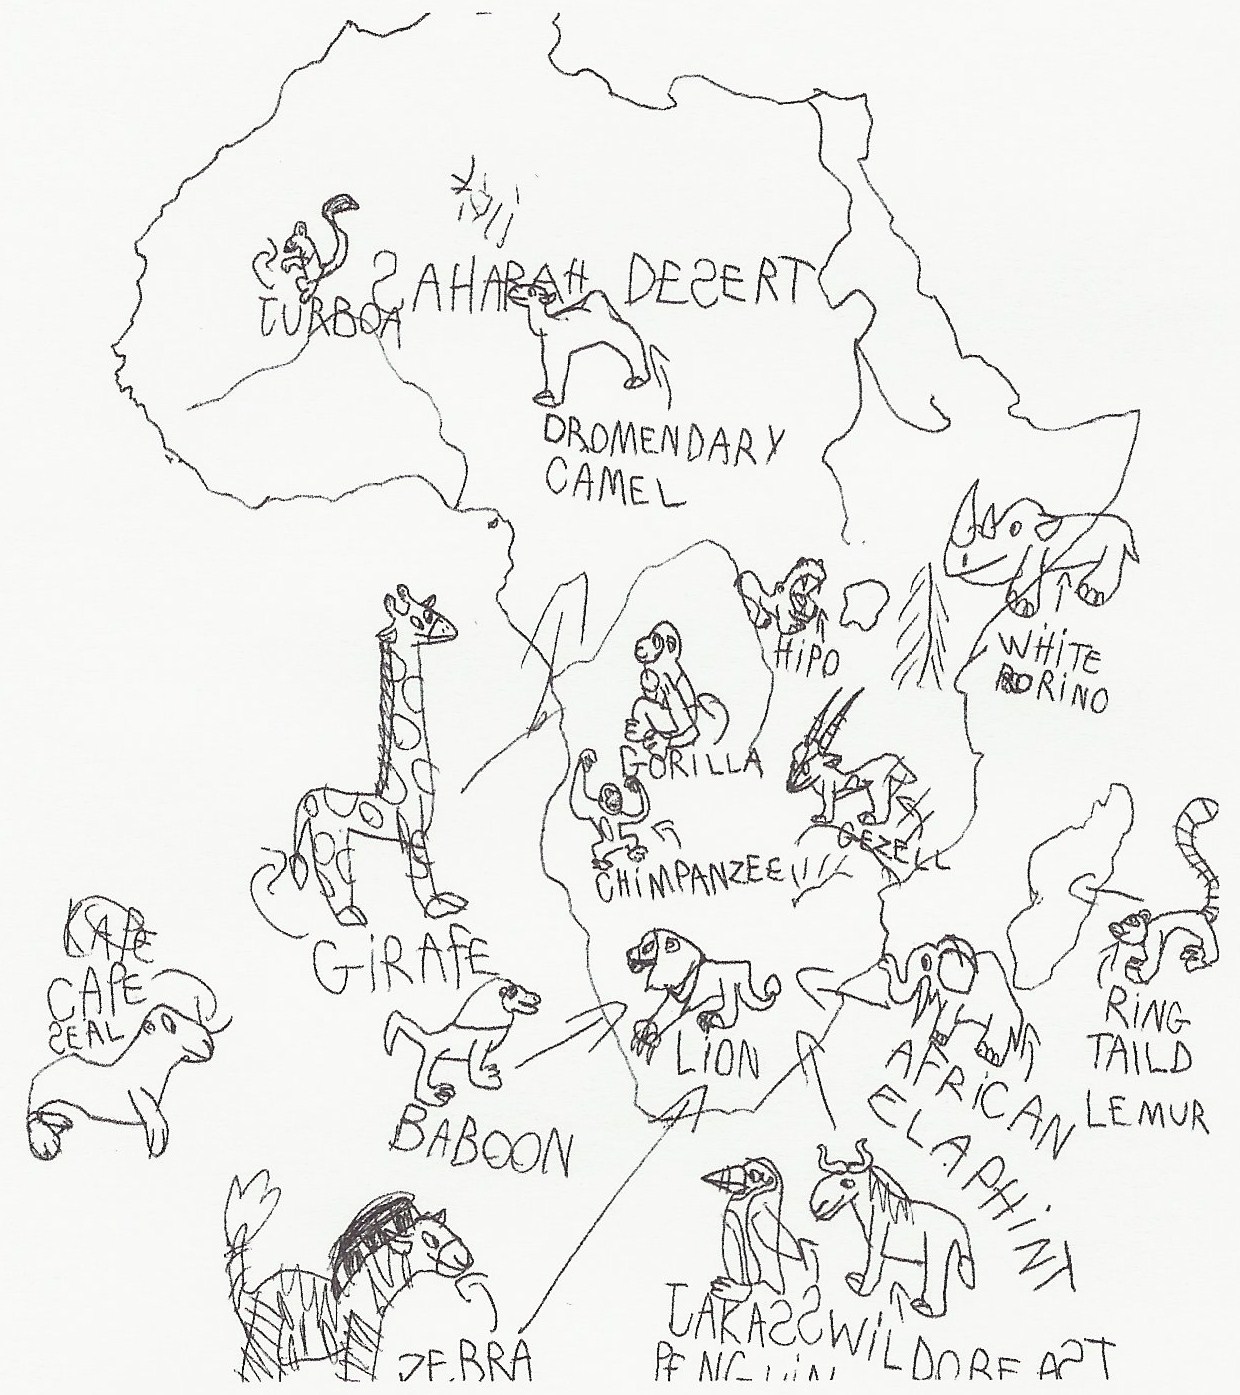 SAHARAH DESERT
JURBOA
DROMENDARY
CAMEL
HiPO
WHiTE
RORiNO
GORILLA
GEZELL
CHiMPANZEE
GiRAFE
KAPE
CAPE
SEAL
LiON
RiNG
TAiLD
LEMUR
AFRiCAN
ELAPHiNT
BABOON
ZEBRA
JAKASS
PENGUiN
WiLDOBEAST